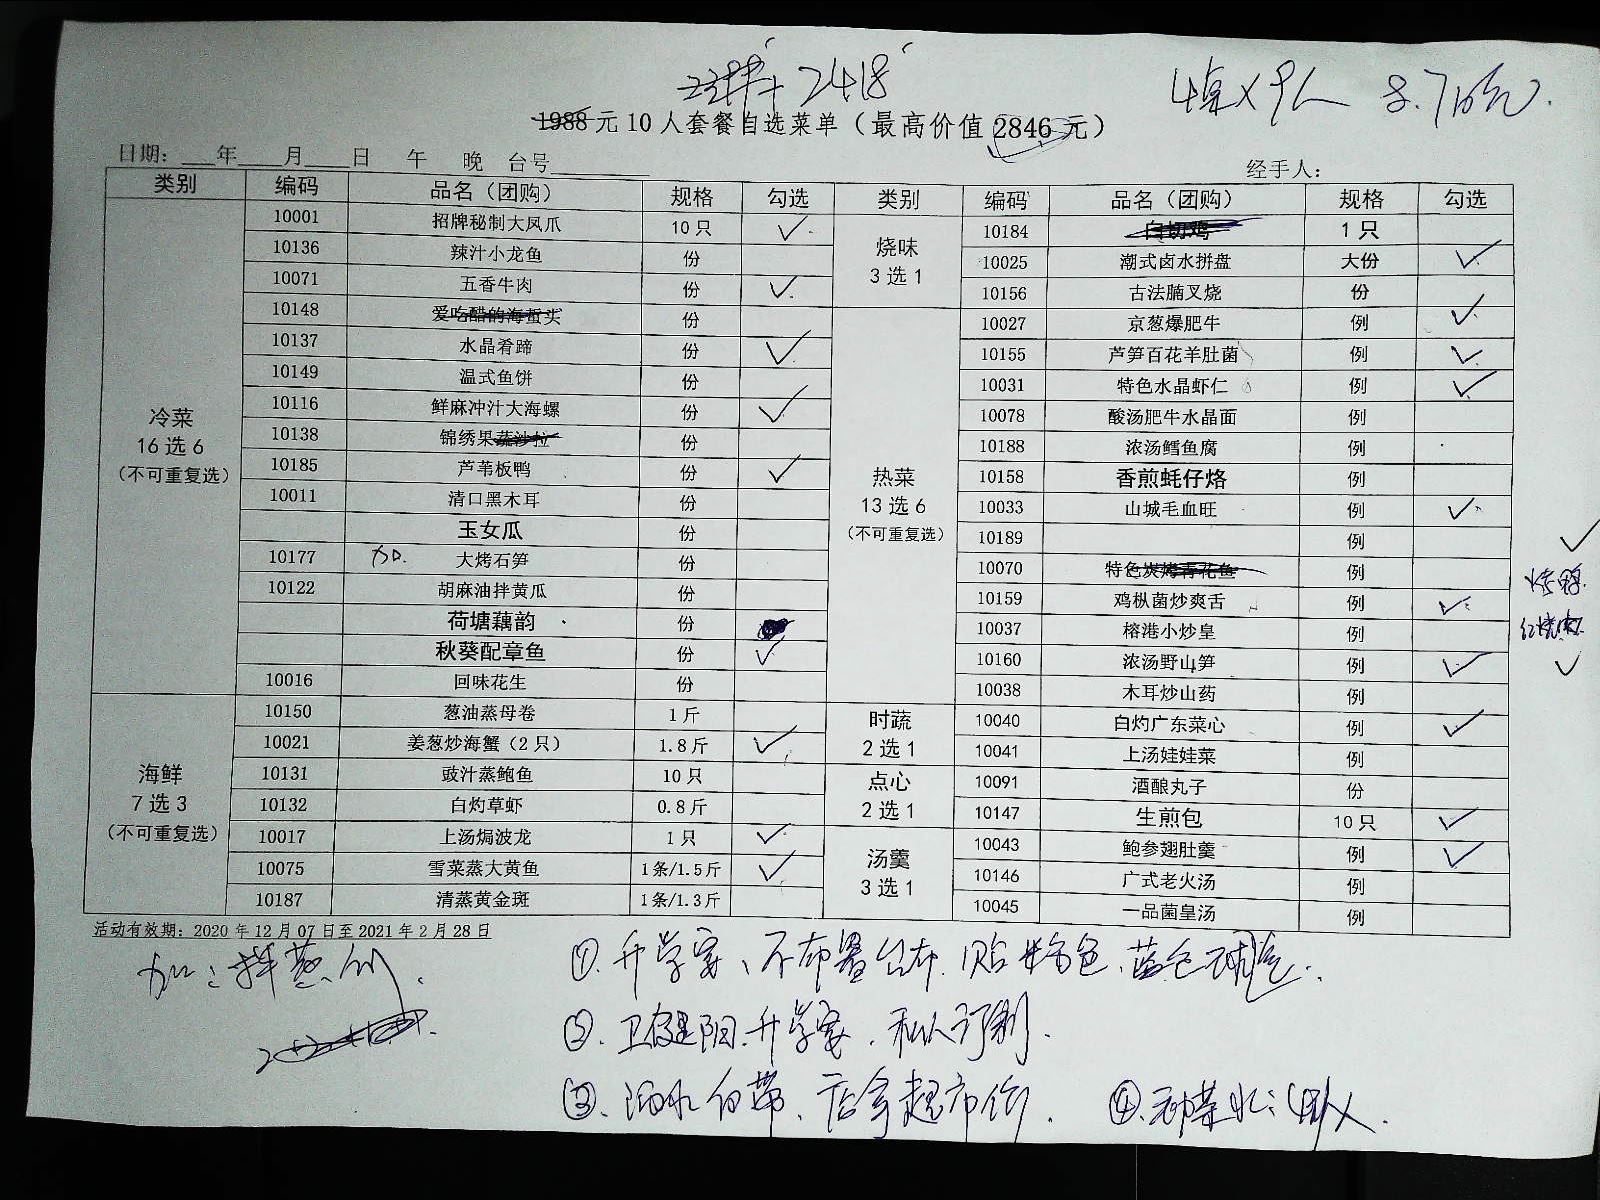 2418
4桌×9人 8.7折.
1988元10人套餐自选菜单（最高价值2846元）
日期：___年___月___日 午 晚 台号________
经手人：
类别 编码 品名（团购） 规格 勾选
冷菜
16选6
（不可重复选）
10001 招牌秘制大凤爪 10只 ✓
10136 辣汁小龙鱼 份
10071 五香牛肉 份 ✓
10148 爱吃醋的海蜇头 份
10137 水晶肴蹄 份 ✓
10149 温式鱼饼 份
10116 鲜麻冲汁大海螺 份 ✓
10138 锦绣果蔬沙拉 份
10185 芦苇板鸭 份 ✓
10011 清口黑木耳 份
玉女瓜 份
10177 加. 大烤石笋 份
10122 胡麻油拌黄瓜 份
荷塘藕韵 份
秋葵配章鱼 份 ✓
10016 回味花生 份
海鲜
7选3
（不可重复选）
10150 葱油蒸母卷 1斤
10021 姜葱炒海蟹（2只） 1.8斤 ✓
10131 豉汁蒸鲍鱼 10只
10132 白灼草虾 0.8斤
10017 上汤焗波龙 1只 ✓
10075 雪菜蒸大黄鱼 1条/1.5斤 ✓
10187 清蒸黄金斑 1条/1.3斤
类别 编码 品名（团购） 规格 勾选
烧味
3选1
10184 白切鸡 1只
10025 潮式卤水拼盘 大份 ✓
10156 古法腩叉烧 份
热菜
13选6
（不可重复选）
10027 京葱爆肥牛 例 ✓
10155 芦笋百花羊肚菌 例 ✓
10031 特色水晶虾仁 例 ✓
10078 酸汤肥牛水晶面 例
10188 浓汤鳕鱼腐 例
10158 香煎蚝仔烙 例
10033 山城毛血旺 例 ✓
10189 例 ✓
10070 特色炭烤青花鱼 例
10159 鸡枞菌炒爽舌 例 ✓
10037 榕港小炒皇 例
10160 浓汤野山笋 例 ✓
10038 木耳炒山药 例
烤鸭.
红烧肉.
✓
时蔬
2选1
10040 白灼广东菜心 例 ✓
10041 上汤娃娃菜 例
点心
2选1
10091 酒酿丸子 份
10147 生煎包 10只 ✓
汤羹
3选1
10043 鲍参翅肚羹 例 ✓
10146 广式老火汤 例
10045 一品菌皇汤 例
活动有效期：2020年12月07日至2021年2月28日
①.升学宴、不布置台布
②.升学宴.私人订制.
③.酒水自带.店拿超市价.